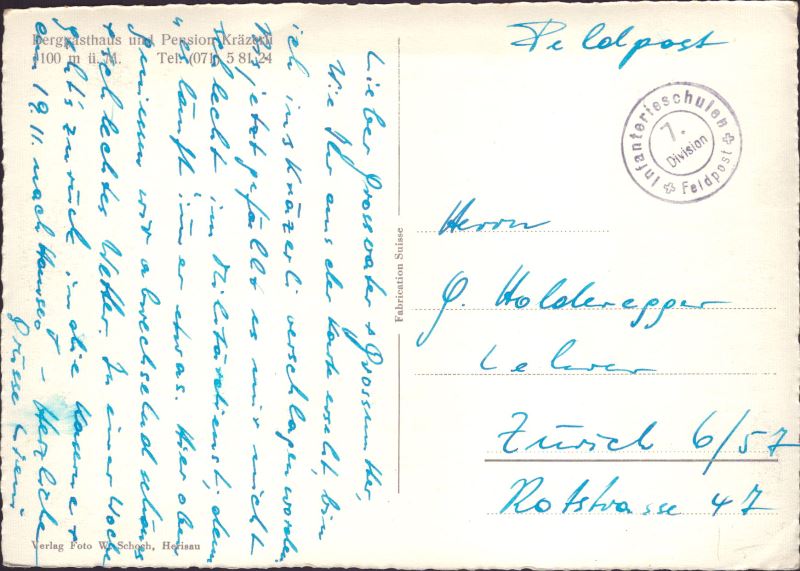 Berggasthaus und Pension Kräzerli
1100 m ü. M. Tel. (071) 5 81 24
Lieber Grossvater + Grossmutter,
Wie Ihr aus der Karte erseht, bin
ich ins Kräzerli verschlagen worden.
Bis jetzt gefällt es mir nicht
schlecht im Militärdienst, denn
es läuft immer etwas. Hier oben
geniessen wir abwechselnd schönes
+ schlechtes Wetter. In einer Woche
geht's zurück in die Kaserne +
am 19. 11. nach Hause! – Herzliche
Grüsse
Verlag Foto W. Schoch, Herisau
Fabrication Suisse
Feldpost
Infanterieschulen
7.
Division
Feldpost
Herrn
G. Holderegger
Lehrer
Zürich 6/57
Rotstrasse 47